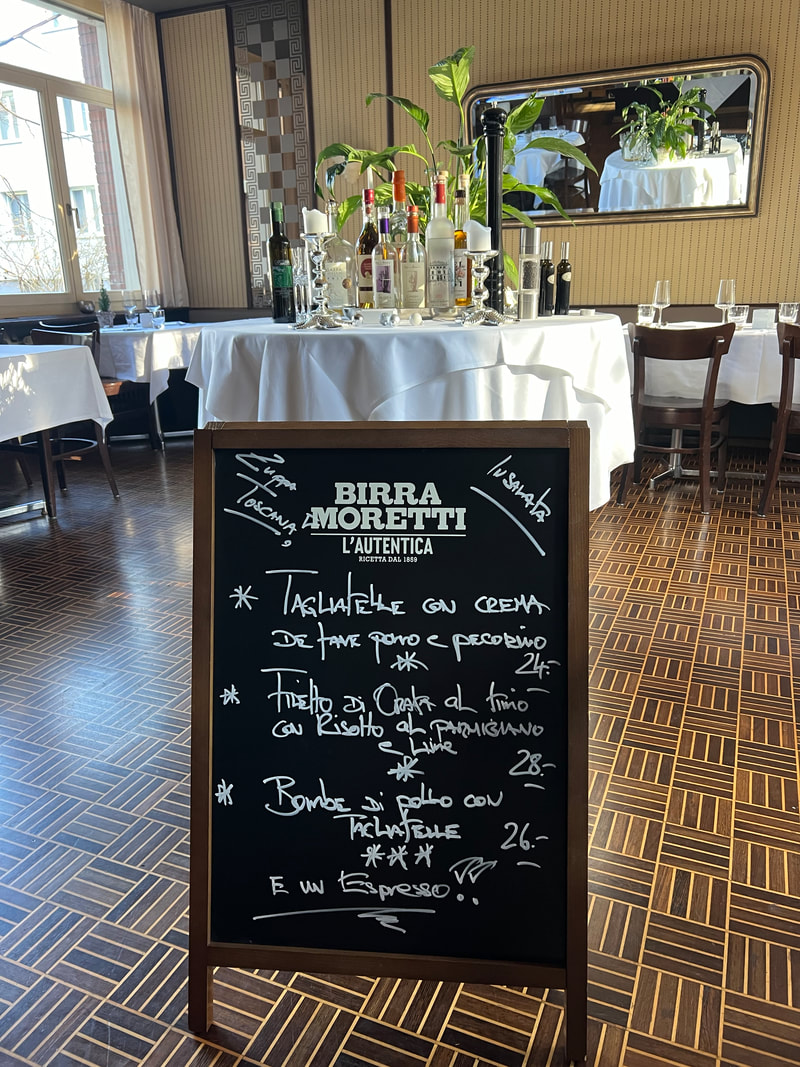 Zuppa
Toscana
Insalata
BIRRA
MORETTI
L'AUTENTICA
RICETTA DAL 1859
* Tagliatelle con crema
de fave porro e pecorino
* 24.-
* Filetto di Orata al timo
con Risotto al parmigiano
e Lime
* 28.-
* Bombe di pollo con
Tagliatelle 26.-
***
E un Espresso..